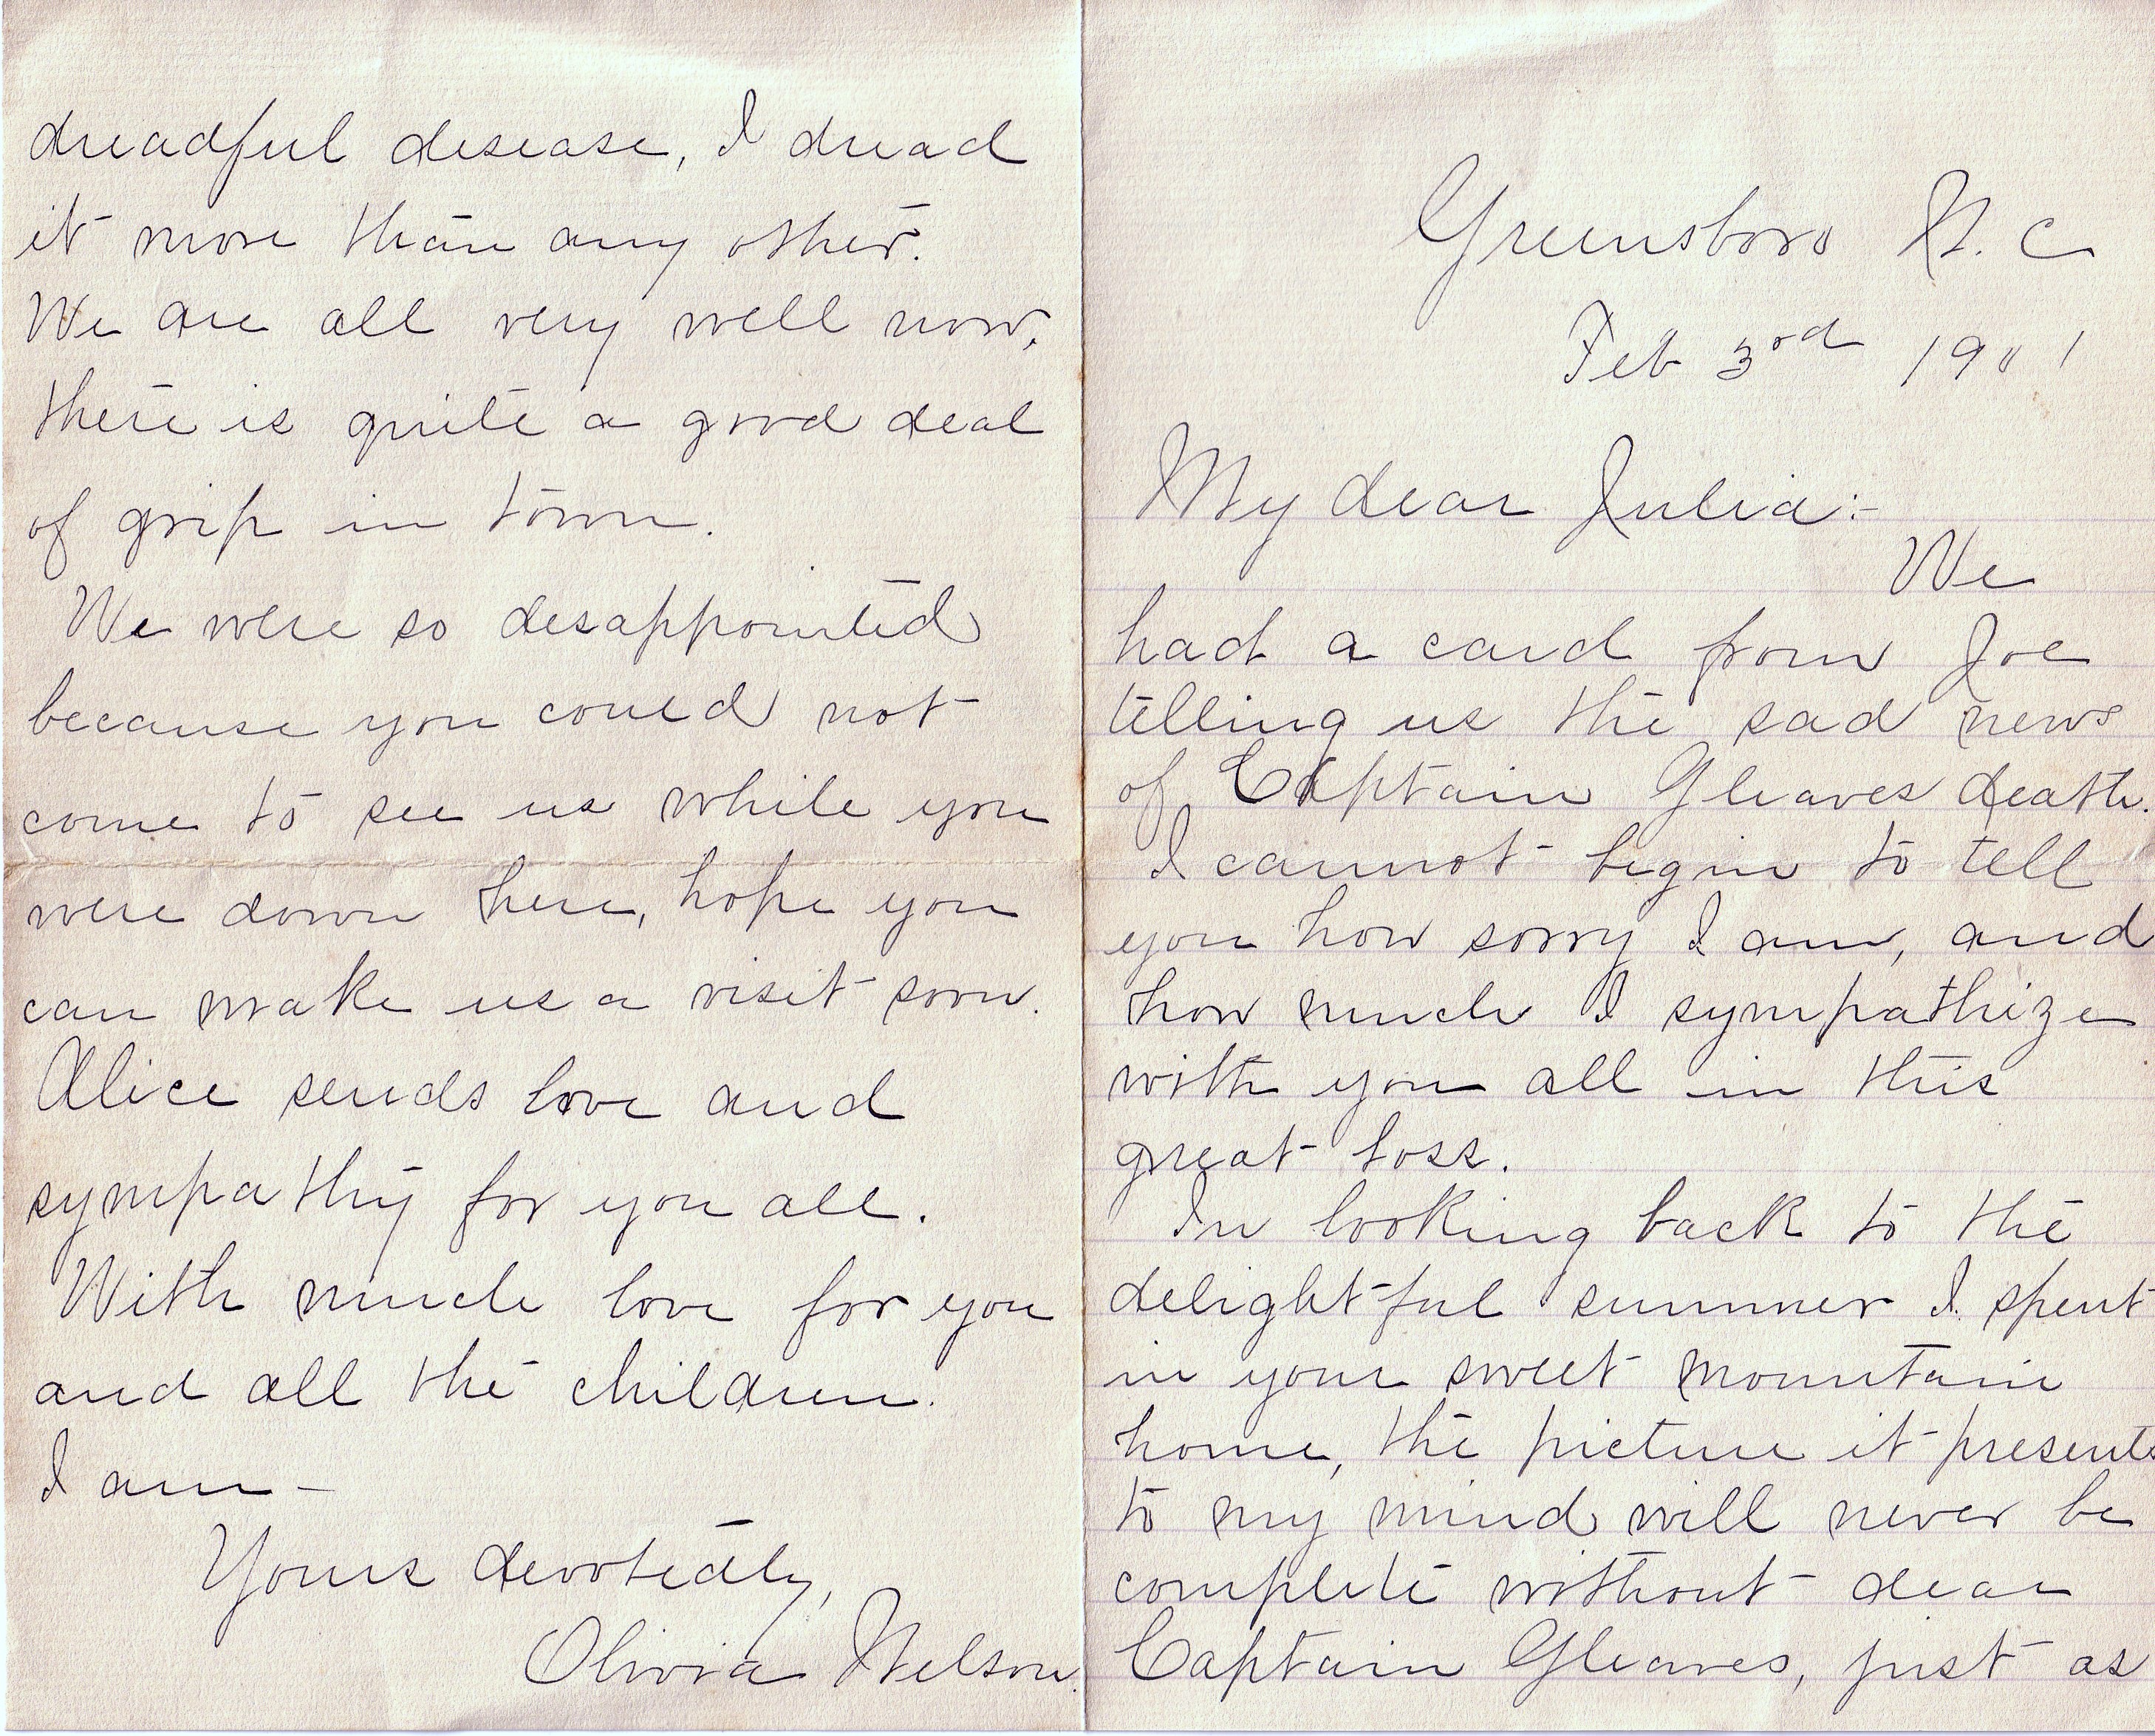 Greensboro N. C
Feb 3rd 1901
My dear Julia:-
We
had a card from Joe
telling us the sad news
of Captain Gleaves death.
I cannot begin to tell
you how sorry I am, and
how much I sympathize
with you all in this
great loss.
In looking back to the
delightful summer I spent
in your sweet mountain
home, the picture it presents
to my mind will never be
complete without dear
Captain Gleaves, just as
dreadful desease, I dread
it more than any other.
We are all very well now,
there is quite a good deal
of grip in town.
We were so desappointed
because you could not
come to see us while you
were down here, hope you
can make us a visit soon.
Alice sends love and
sympathy for you all.
With much love for you
and all the children.
I am -
Yours devotedly,
Olivia Nelson.